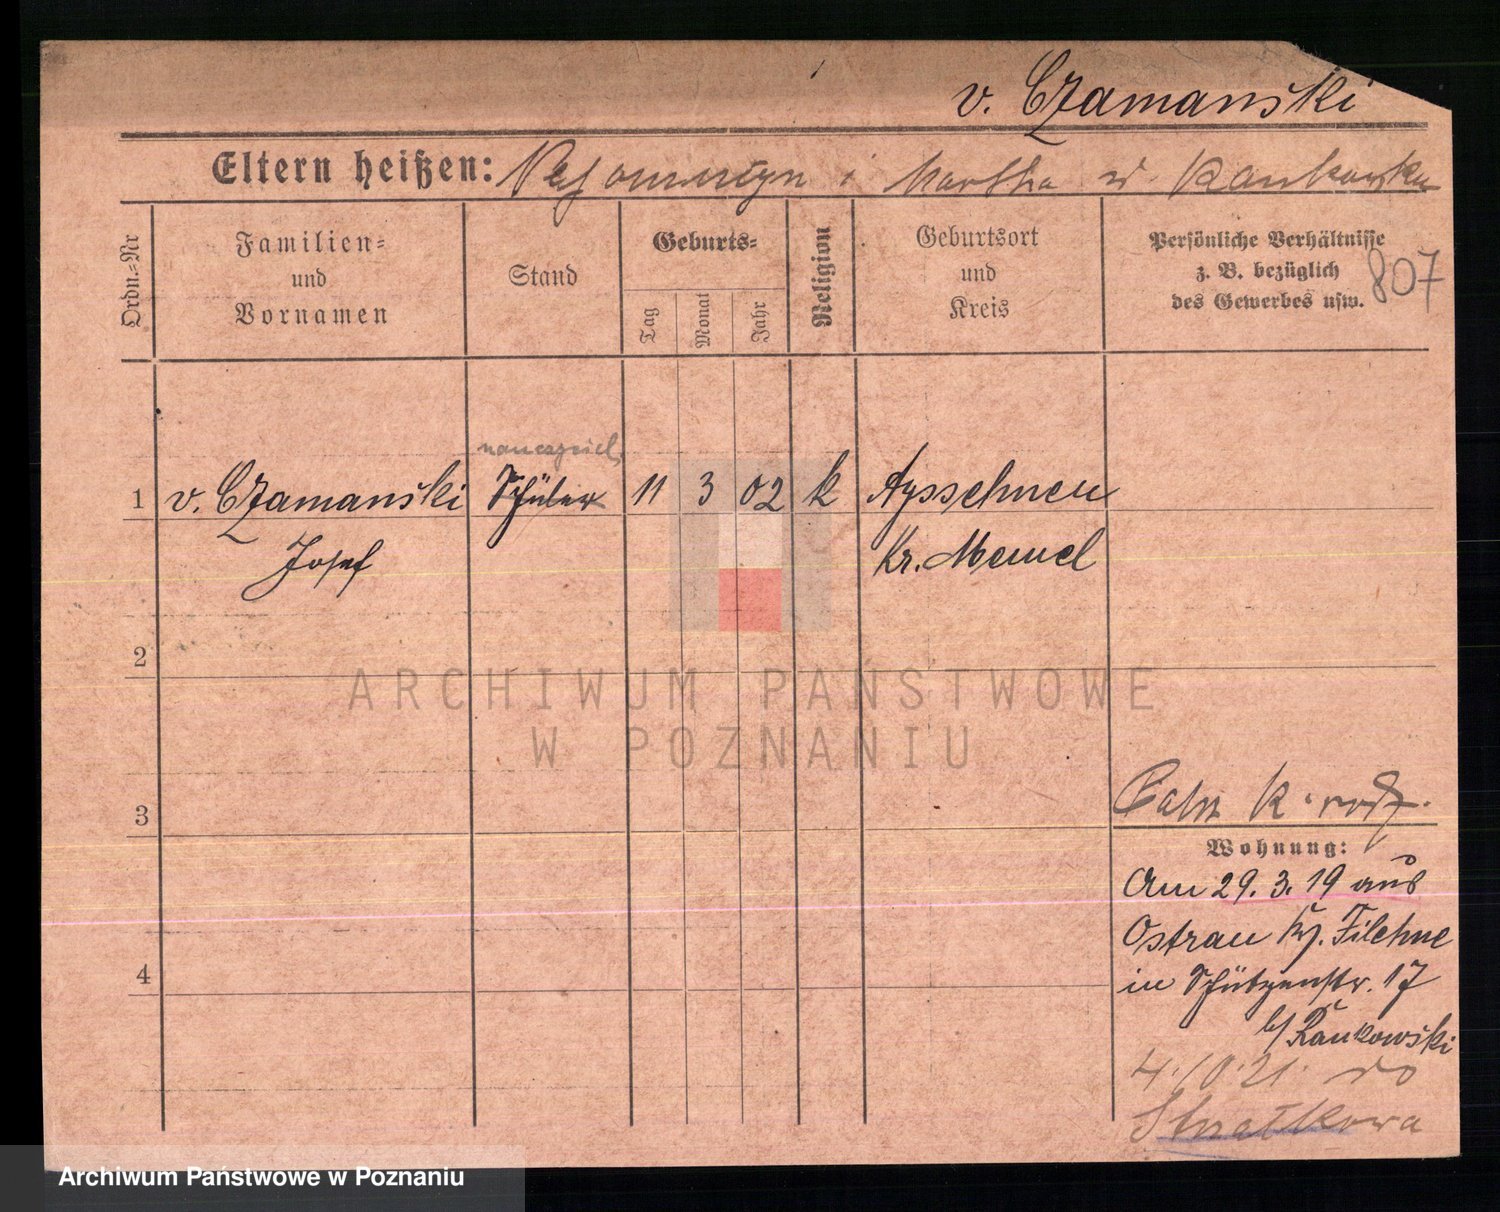 v. Czamanski
Eltern heißen: Nepomucyn i Martha
Ordn.=Nr
Familien=
und
Vornamen
Stand
Geburts=
Tag
Monat
Jahr
Religion
Geburtsort
und
Kreis
Persönliche Verhältnisse
z. B. bezüglich
des Gewerbes usw.
807
1 v. Czamanski Schüler 11 3 02 k Aysschnen
Josef Kr. Memel
2
3
Wohnung:
Am 29. 3. 19 aus
Ostrau Kr. Filehne
in Schützenstr. 17
b/ Rankowski
4
4.10.21. do
Strzałkowa
ARCHIWUM PAŃSTWOWE
W POZNANIU
Archiwum Państwowe w Poznaniu